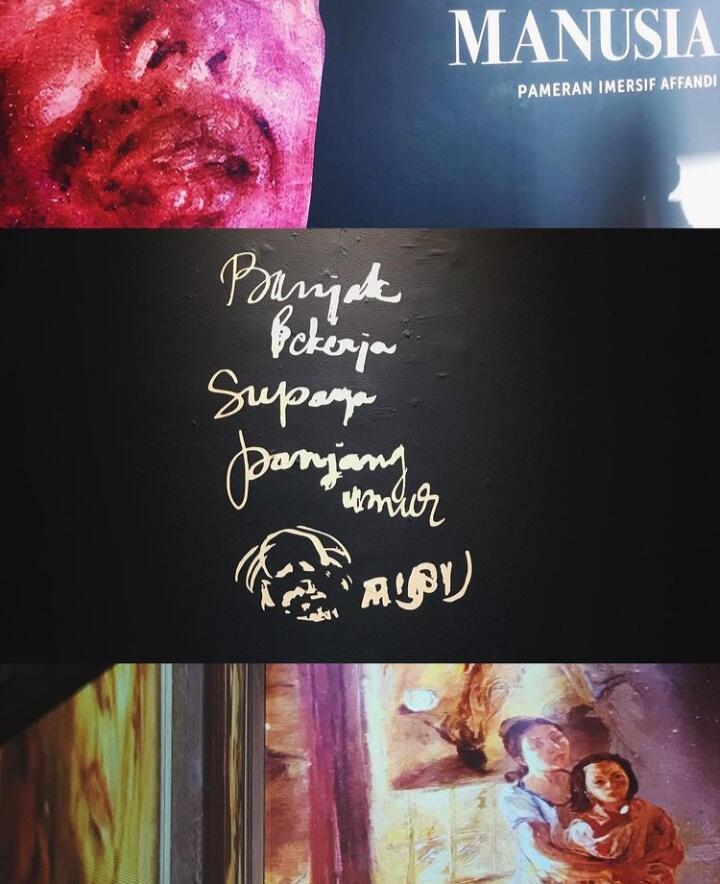 MANUSIA
PAMERAN IMERSIF AFFANDI
Banjak
Bekerja
Supaya
panjang
umur